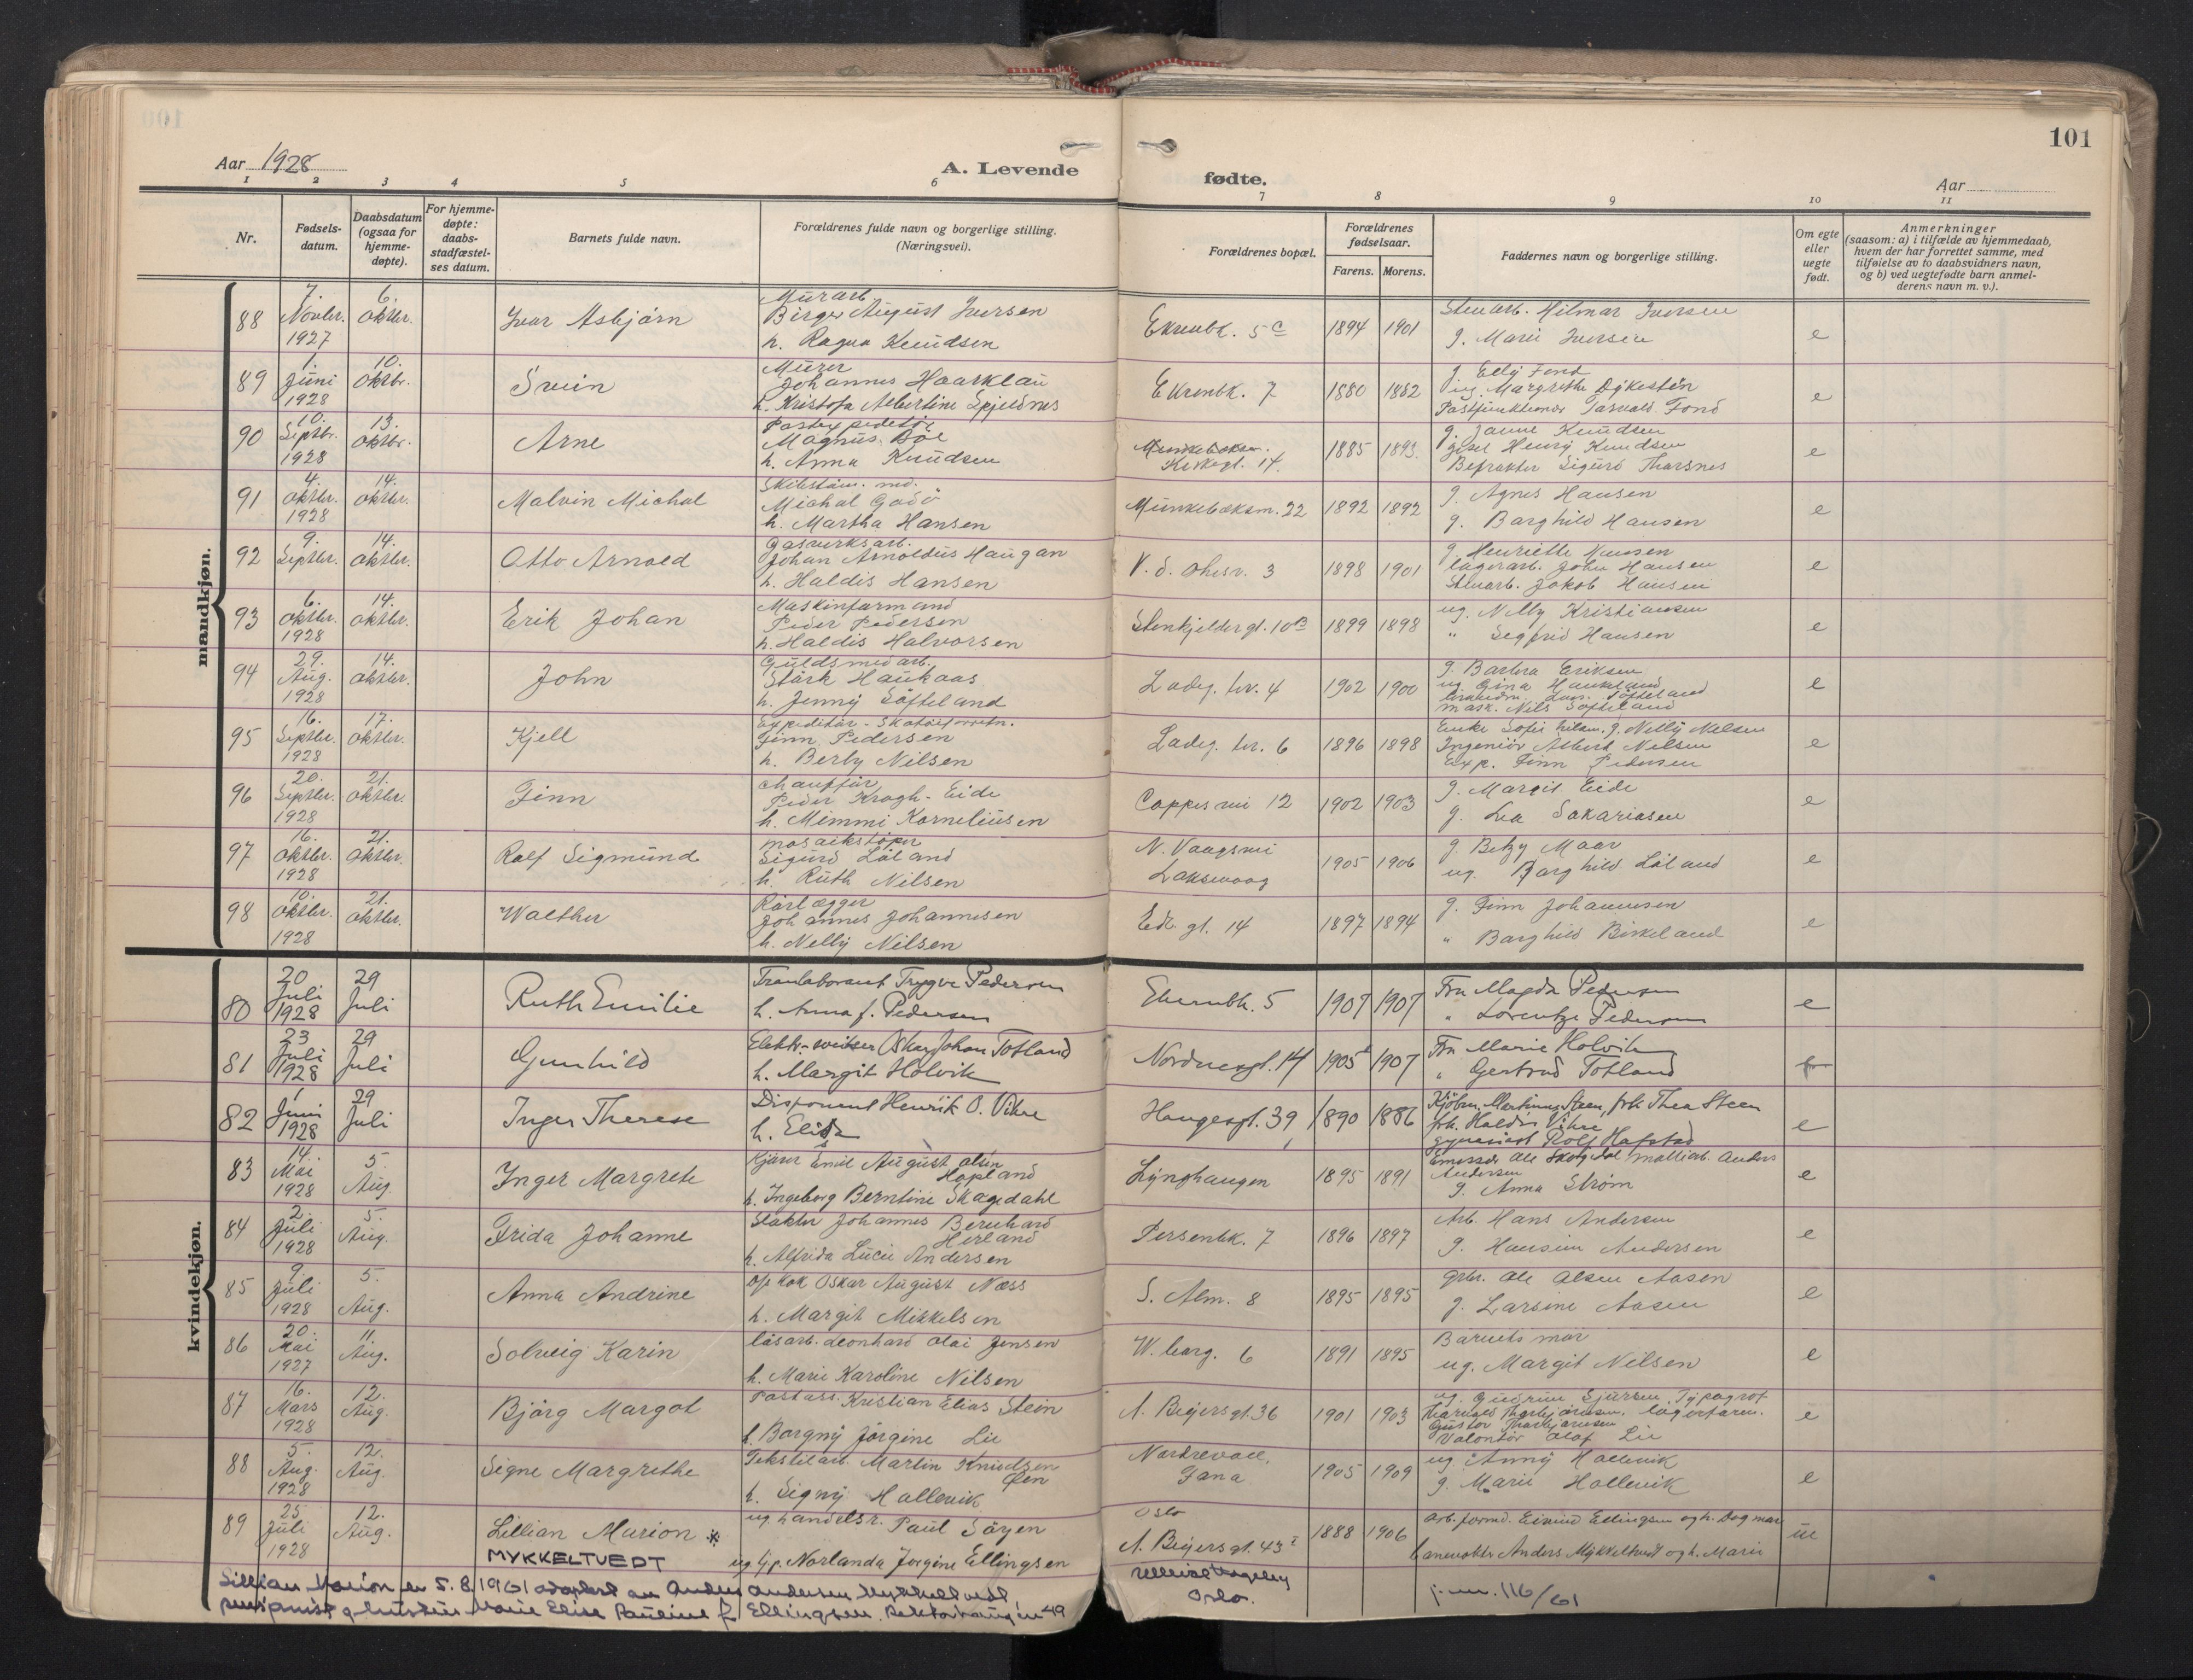 101
Aar 1928
A. Levende fødte.
Aar
1 2 3 4 5 6 7 8 9 10 11
Nr.
Fødsels-datum.
Daabsdatum (ogsaa for hjemme-døpte).
For hjemme-døpte: daabs-stadfæstel-ses datum.
Barnets fulde navn.
Forældrenes fulde navn og borgerlige stilling. (Næringsvei).
Forældrenes bopæl.
Forældrenes fødselsaar.
Farens. Morens.
Faddernes navn og borgerlige stilling.
Om egte eller uegte født.
Anmerkninger (saasom: a) i tilfælde av hjemmedaab, hvem der har forrettet samme, med tilføielse av to daabsvidners navn, og b) ved uegtefødte barn anmel-derens navn m. v.).
mandkjøn.
88 7. Novbr. 1927 6. Oktbr. Ivar Asbjørn Murarb. Birger August Iversen h. Ragna Knudsen Ekrenbk. 5c 1894 1901 Stenarb. Hilmar Iversen g. Marie Iversen e
89 1. Juni 1928 10. Oktbr. Svein Murer Johannes Haarklau h. Kristofa Albertine Spjeldnes Ekrenbk. 7 1880 1882 g. Elly Fond ug. Margrethe Dykesten Postfunktionær Fond e
90 10. Septbr. 1928 13. Oktbr. Arne Postexpeditør Magnus Boe h. Anna Knudsen 14. 1885 1893. g. Janne Knudsen Henry Knudsen Befrakter Sigurd Thorsnes e
91 4. Oktbr. 1928 14. Oktbr. Malvin Michal Michal Gadö h. Martha Hansen Munkebæksm. 22 1892 1892 g. Agnes Hansen g. Borghild Hansen e
92 9. Septbr. 14. Oktbr. Otto Arnold Gasverksarb. Johan Arnoldus Haugan h. Haldis Hansen 3 1898 1901 g. Henriette Hansen lagerarb. John Hansen Stenarb. Jakob Hansen e
93 6. Oktbr. 1928 14. Oktbr. Erik Johan Maskinformand Peder Pedersen h. Haldis Halvorsen Stenkjeldergt. 10B 1899 1898 ug. Nelly Kristiansen " Segfrid Hansen e
94 29. Aug. 1928 14. Oktbr. John Guldsmedarb. Stärk Haukaas h. Jenny Söfteland Ladeg. tr. 4 1902 1900 g. Barbra Eriksen ug. Gina Haukeland Lars Söfteland mask. Nils Söfteland e
95 16. Septbr. 1928 17. Oktbr. Kjell Expeditør - Skotøiforretn. Finn Pedersen h. Berby Nilsen Ladeg. tr. 6 1896 1898 Enke Sofie Nilsen. g. Nelly Nilsen Ingeniör Albert Nilsen Exp. Finn Pedersen e
96 20. Septbr. 1928 21. Oktbr. Finn Chauffør Peder Krogh-Eide h. Mimmi Korneliusen Coppes vei 12 1902 1903 g. Margit Eide g. Lea Sakariasen e
97 16. Oktbr. 1928 21. Oktbr. Rolf Sigmund Mosaikstøper Sigurd Låland h. Ruth Nilsen N. Vaagsvei Laksevaag 1905 1906 g. Betzy Maar ug. Borghild Låland e
98 10. Oktbr. 1928 21. Oktbr. Walther Rørlægger Johannes Johannesen h. Nelly Nilsen gt. 14 1897 1894 g. Finn Johannesen " Borghild Birkeland e
kvindekjøn.
80 20 Juli 1928 29 Juli Ruth Emilie Tranlaborant Trygve Pedersen h. Anna f. Pedersen 5 1907 1907 Fru Magda Pedersen " Lorentze Pedersen e
81 23 Juli 1928 29 Juli Gunhild Elektr. sveiser Oskar Johan Totland h. Margit Holvik Nordnesgt. 14 1905 1907 Fru Marie Holvik " Gertrud Totland
82 1 Juni 1928 29 Juli Inger Therese Disponent Henrik O. Vikre h. Elida Haugesgt. 39 1890 1886 Kjöbm. Martinus Steen, frk. Thea Steen frk. Haldis Vikre gymnasiast Rolf Hafstad e
83 14. Mai 1928 5. Aug. Inger Margrete Kjører Emil August Olsen Hopland h. Ingeborg Berntine Skagedahl Lynghaugen 1895 1891 Anders Andersen g. Anna Strøm e
84 2. Juli 1928 5. Aug. Frida Johanne Slakter Johannes Bernhard Herland h. Alfrida Lucie Andersen Persenbk. 7 1896 1897 Arb. Hans Andersen g. Hansine Andersen e
85 9. Juli 1928 5. Aug. Anna Andrine Kok Oskar August Næss h. Margit Mikkelsen S. Alm. 8 1895 1895 Grbr. Ole Olsen Aasen g. Larsine Aasen e
86 20. Mai 1927 11. Aug. Solveig Karin løsarb. Leonhard Olai Jensen h. Marie Karoline Nilsen W. borg. 6 1891 1895 Barnets mor ug. Margit Nilsen e
87 16. Mars 1928 12. Aug. Bjørg Margot Postass. Kristian Elias Stein h. Borgny Jørgine Lie A. Beyersgt. 36 1901 1903 ug. Gudrun Sjursen, Typograf Thorbjørnsen. lagerform. Gustav Thorbjørnsen Volontør Olaf Lie e
88 5. Aug. 1928 12. Aug. Signe Margrethe Tekstilarb. Martin Knudsen Øen h. Signy Hallevik Nordrevoll, Fana 1905 1909 ug. Anny Hallevik g. Marie Hallevik e
89 25. Juli 1928 12. Aug. Lillian Marion * MYKKELTVEDT ug. handelsr. Paul Söyen ug. tjp. Norlanda Jørgine Ellingsen Oslo A. Beyersgt. 43 I 1888 1906 Arb.formd. Eivind Ellingsen og h. Dagmar Anders Mykkeltvedt og h. Marie ue
Lillian Marion er 5.8.1961 adoptert av Anders Andersen Mykkeltvedt,
pensjonist og hustru Marie Elise Pauline f. Ellingsen. 49
Ullevål Hageby Oslo. j.nr. 116/61